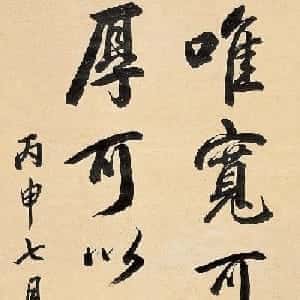 唯寬可
厚可以
丙申七月